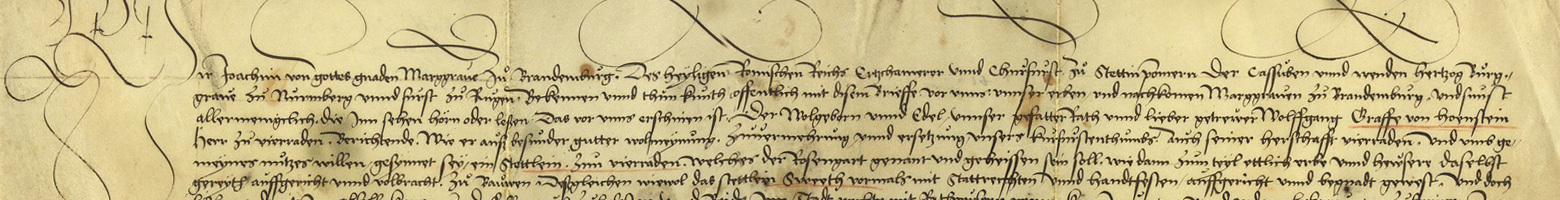 Wir Joachim von gottes gnaden Marggraue zů Brandemburg. Des heyligen Romischen Reichs Ertzchamerer vnnd Churfurst zů Stettin pomern Der Cassuben vnnd wenden hertzog Burg-
graue zů Nurmberg vnnd furst zů Rugen. Bekennen vnnd thun kunth offentlich mit disem Brieffe vor vnns vnnser erben vnd nachkomen Marggrauen zů Brandemburg. vnd sunst
allermeniglich. die Jnn sehen hörn oder lesen. Das vor vnns erschinen ist. Der Wolgeborn vnnd Edel vnnser gefatter Rath vnnd lieber getrewer Wolffgang Graffe von hoenstein
Herr zů vierraden. Berichtende. Wie er auß besunder gutter wolmeynung. Zuuermehrung vnnd ersetzung vnsers kurfurstenthumbs. auch seiner herschafft vierraden. vnd vmb ge-
meynes nutzes willen gesonnet sey ein Stettlein. Zuu vierraden. welches der Rosengart genant vnd geheissen sein soll. wie dann zum teyl ettlich erbe vnnd hewsere daselbst
gereyth auffgericht vnnd volbracht. Zů Bauwen. Desgleichen wiewol das stettlein Sweeth vormals mit Stattrechten vnnd handtfesten auffgericht vnnd begnadt gewest. vnd doch